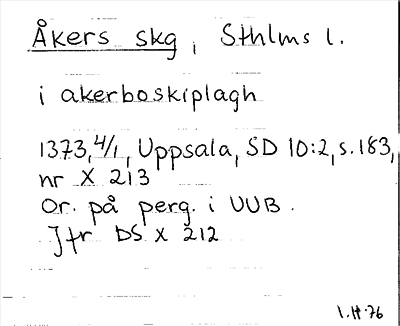 Åkers skg, Sthlms l.
i akerboskiplagh
1373, 4/1, Uppsala, SD 10:2, s. 183,
nr X 213
Or. på perg. i UUB.
Jfr DS X 212